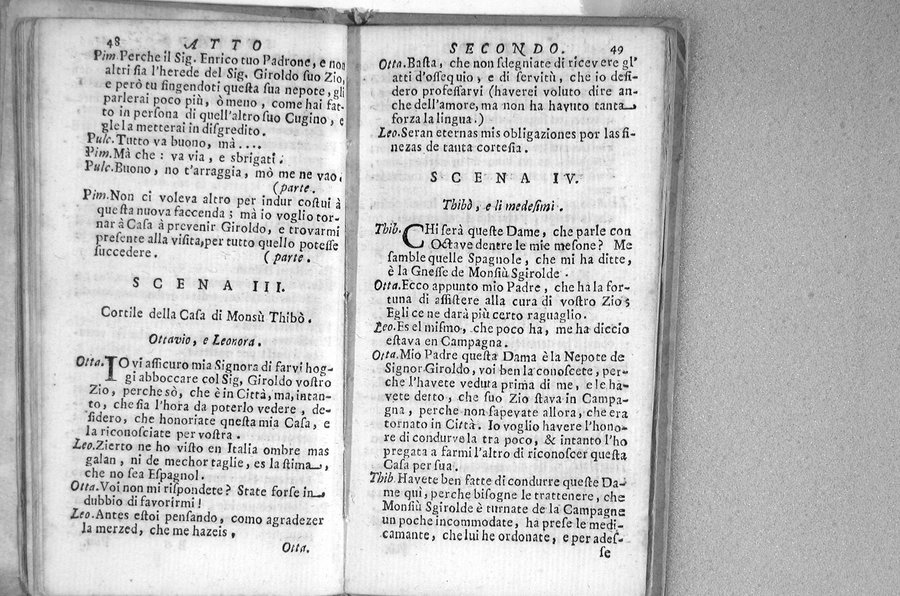 48 ATTO
Pim. Perche il Sig. Enrico tuo Padrone, e non
altri ſia l'herede del Sig. Giroldo ſuo Zio,
e però tu fingendoti queſta ſua nepote, gli
parlerai poco più, ò meno, come hai fat-
to in perſona di quell'altro ſuo Cugino, e
gle la metterai in diſgredito.
Pulc. Tutto va buono, mà....
Pim. Mà che: va via, e sbrigati.
Pulc. Buono, no t'arraggia, mò me ne vao.
(parte.
Pim. Non ci voleva altro per indur coſtui à
queſta nuova faccenda; mà io voglio tor-
nar à Caſa à prevenir Giroldo, e trovarmi
preſente alla viſita, per tutto quello poteſſe
ſuccedere. (parte.
SCENA III.
Cortile della Caſa di Monsù Thibò.
Ottavio, e Leonora.
Otta. IO vi aſſicuro mia Signora di farvi hog-
gi abboccare col Sig, Giroldo voſtro
Zio, perche sò, che è in Città, ma, intan-
to, che ſia l'hora da poterlo vedere, de-
ſidero, che honoriate queſta mia Caſa, e
la riconoſciate per voſtra.
Leo. Zierto ne ho viſto en Italia ombre mas
galan, ni de mechor taglie, es la ſtima,
che no ſea Eſpagnol.
Otta. Voi non mi riſpondete? State forſe in
dubbio di favorirmi!
Leo. Antes eſtoi penſando, como agradezer
la merzed, che me hazeis,
Otta.
SECONDO. 49
Otta. Baſta, che non ſdegniate di ricevere gl'
atti d'oſſequio, e di ſervitù, che io deſi-
dero profeſſarvi (haverei voluto dire an-
che dell'amore, ma non ha havuto tanta
forza la lingua.)
Leo. Seran eternas mis obligaziones por las fi-
nezas de tanta corteſia.
SCENA IV.
Thibò, e li medeſimi.
Thib. CHi ſerà queſte Dame, che parle con
Octave dentre le mie meſone? Me
ſamble quelle Spagnole, che mi ha ditte,
è la Gneſſe de Monſiù Sgirolde.
Otta. Ecco appunto mio Padre, che ha la for-
tuna di aſſiſtere alla cura di voſtro Zio;
Egli ce ne darà più certo raguaglio.
Leo. Es el miſmo, che poco ha, me ha diccio
eſtava en Campagna.
Otta. Mio Padre queſta Dama è la Nepote de
Signor Giroldo, voi ben la conoſcete, per-
che l'havete veduta prima di me, e le ha-
vete detto, che ſuo Zio ſtava in Campa-
gna, perche non ſapevate allora, che era
tornato in Città. Io voglio havere l'hono-
re di condurvela tra poco, & intanto l'ho
pregata a farmi l'altro di riconoſcer queſta
Caſa per ſua.
Thib. Havete ben fatte di condurre queſte Da-
me qui, perche biſogne le trattenere, che
Monſiù Sgirolde è turnate de la Campagne
un poche incommodate, ha preſe le medi-
camante, che lui he ordonate, e per adeſ-
ſe